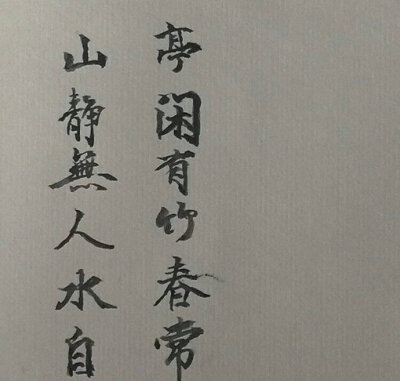 亭閑有竹春常
山靜無人水自